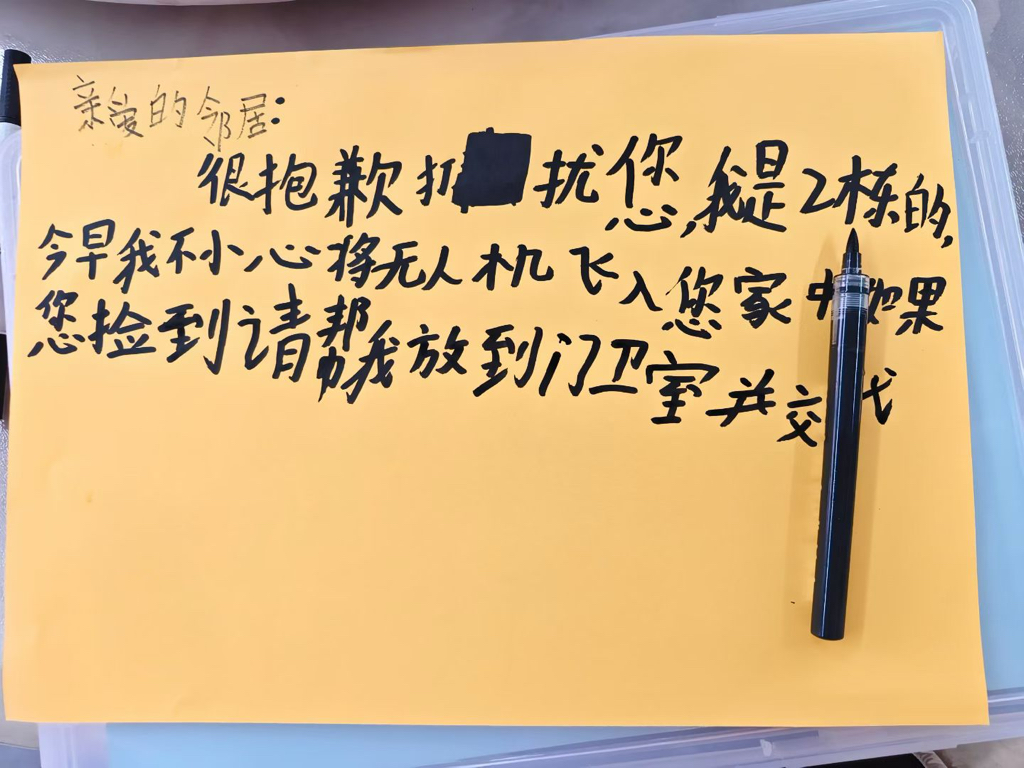 亲爱的邻居:
很抱歉打扰您,我是2栋的,
今早我不小心将无人机飞入您家中如果
您捡到请帮我放到门卫室并交